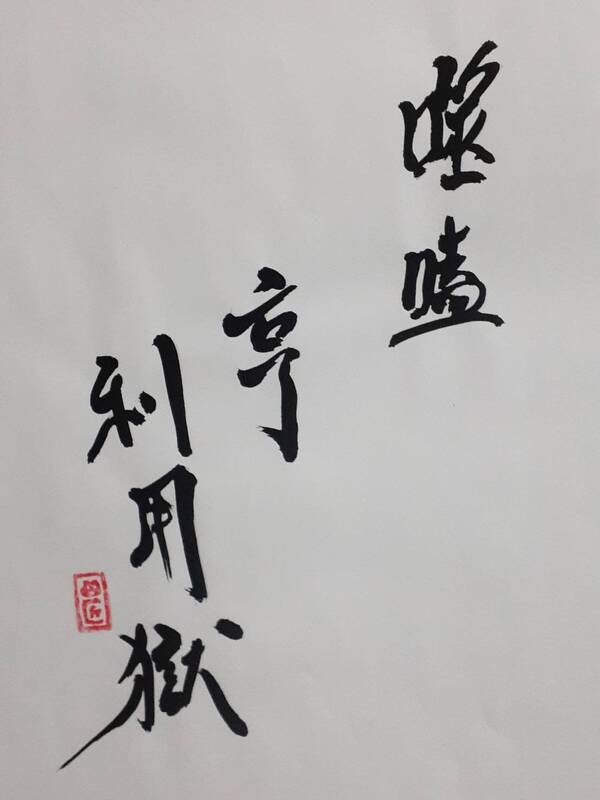 噬嗑
亨
利用獄